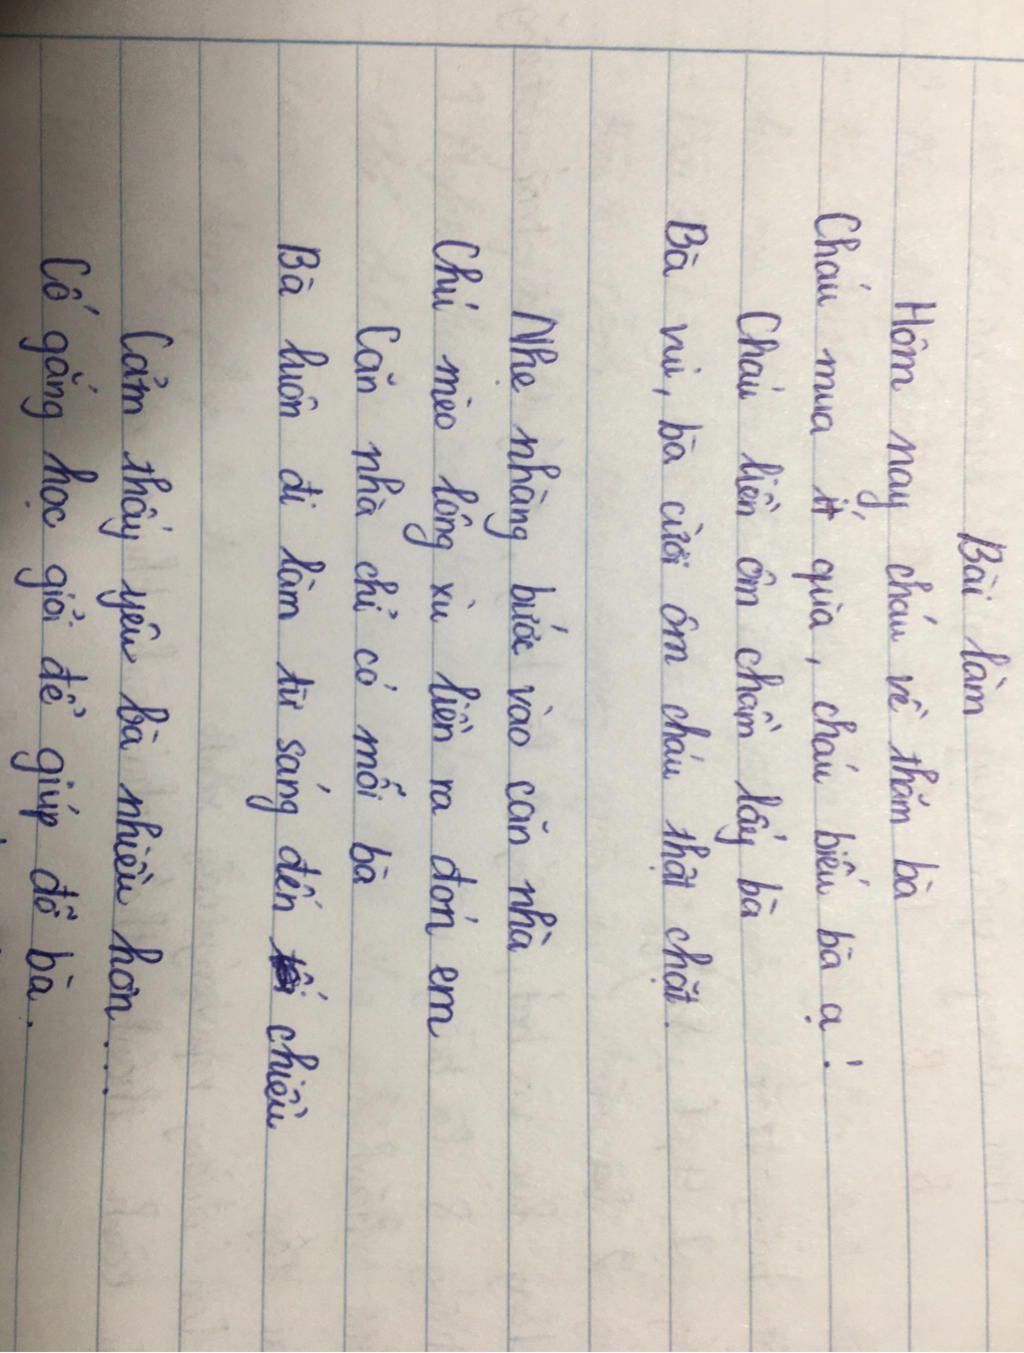 Bài làm
Hôm nay cháu về thăm bà
Cháu mua ít quà, cháu biếu bà ạ!
Cháu liền ôm chầm lấy bà
Bà vui, bà cười ôm cháu thật chặt.
Nhẹ nhàng bước vào căn nhà
Chú mèo lông xù liền ra đón em
Căn nhà chỉ có mỗi bà
Bà luôn đi làm từ sáng đến chiều
Cảm thấy yêu bà nhiều hơn....
Cố gắng học giỏi để giúp đỡ bà.